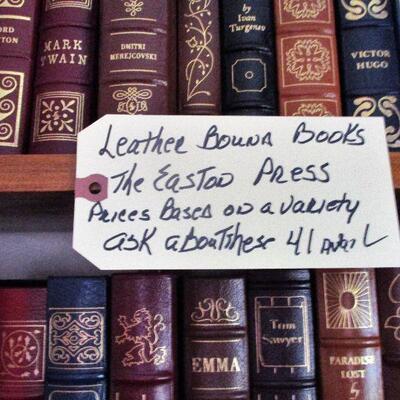 MARK
TWAIN
DMITRI
MEREJCOVSKI
by
Ivan
Turgenev
VICTOR
HUGO
Leather Bound Books
The Easton Press
Prices Based on a variety
ask about these 41 avail
EMMA
Tom
Sawyer
PARADISE
LOST